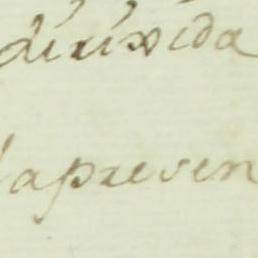 dirixida
la preven